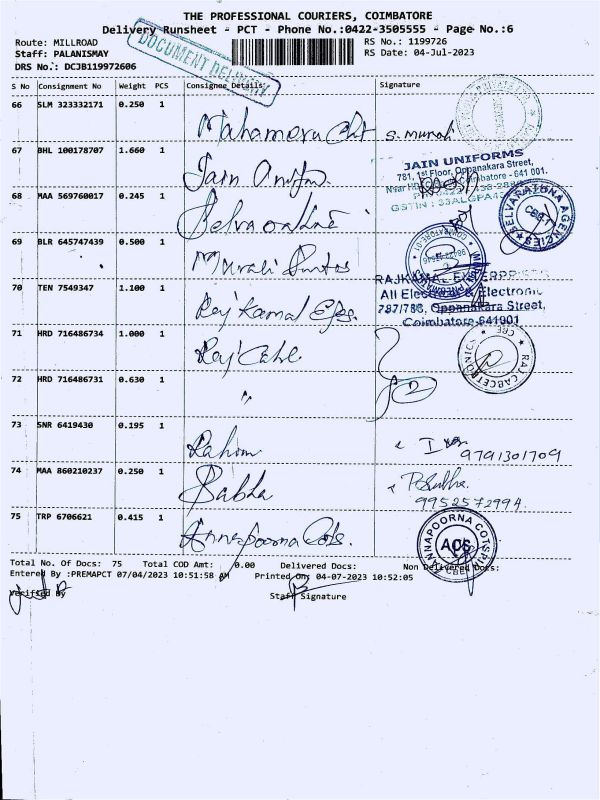 THE PROFESSIONAL COURIERS, COIMBATORE
Delivery Runsheet - PCT - Phone No.:0422-3505555 - Page No.:6
Route: MILLROAD
RS No.: 1199726
Staff: PALANISMAY
RS Date: 04-Jul-2023
DRS No.: DCJB119972606
DOCUMENT DELIVERY
S No Consignment No Weight PCS Consignee Details Signature
66 SLM 323332171 0.250 1
S. Murali
67 BHL 100178707 1.660 1 Jain
JAIN UNIFORMS
781, 1st Floor, Oppanakara Street,
68 MAA 569760017 0.245 1
SELVARATHNA AGENCIES
CBE-1
69 BLR 645747439 0.500 1 Murali
70 TEN 7549347 1.100 1 Raj Kamal
RAJKAMAL ENTERPRISES
All Electrical & Electronic
787/788, Oppanakara Street,
Coimbatore-641001
71 HRD 716486734 1.000 1 Raj
72 HRD 716486731 0.630 1 "
73 SNR 6419430 0.195 1 Rahim
9791301709
74 MAA 860210237 0.250 1 Sabha
9952572994
75 TRP 6706621 0.415 1 Annapoorna Cots.
ANNAPOORNA COTSPIN
ACS
CBE
Total No. Of Docs: 75 Total COD Amt: 0.00 Delivered Docs: Non Delivered Docs:
Entered By :PREMAPCT 07/04/2023 10:51:58 AM Printed On: 04-07-2023 10:52:05
Verified By
Staff Signature